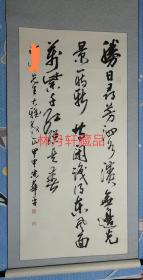 勝日尋芳泗水濱無邊光
景一時新等閒識得東風面
萬紫千紅總是春
先生大雅
甲申
林月轩藏品